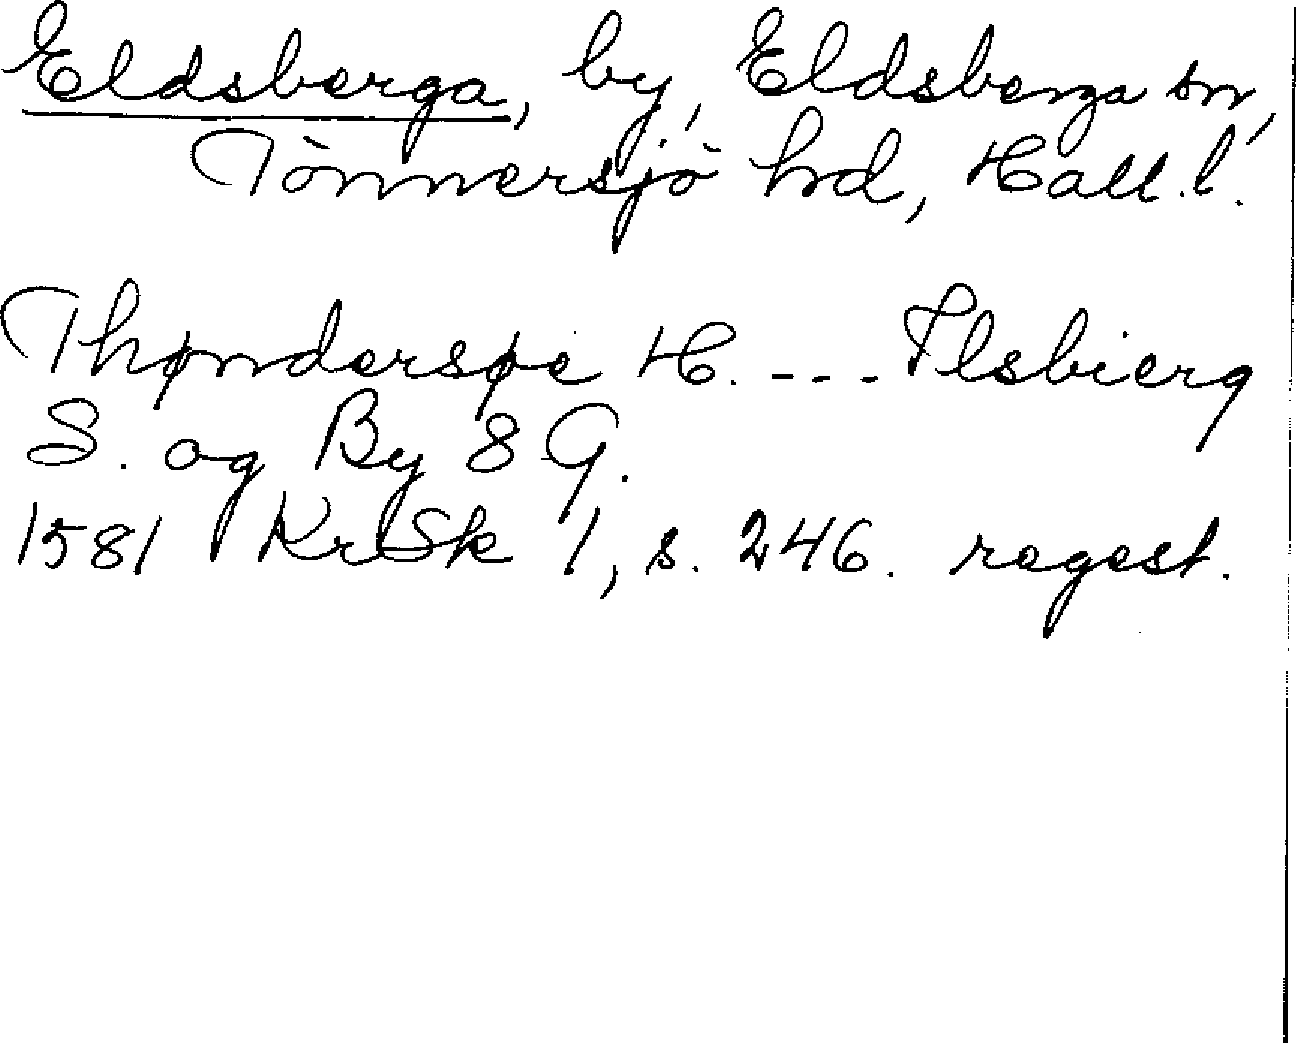 Eldsberga, by, Eldsberga sn,
Tönnersjö hd, Hall. l.
Thøndersøe H. --- Ilsbierg
S. og By 8 G.
1581 KrSk 1, s. 246. regest.